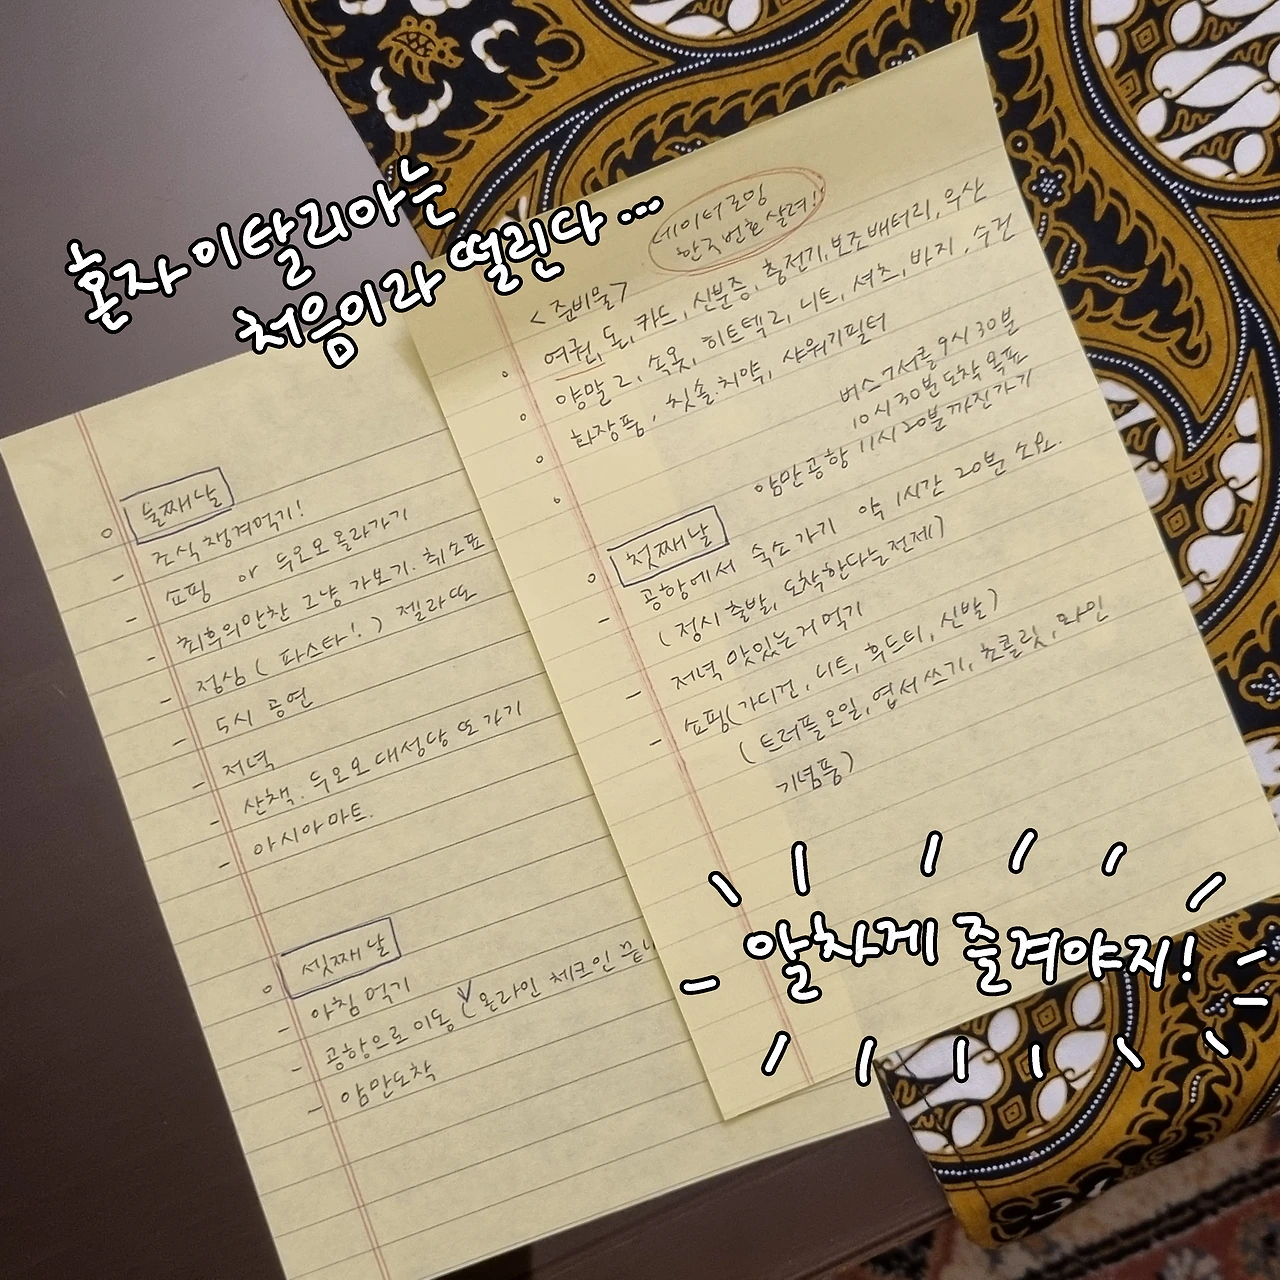 혼자 이탈리아는
처음이라 떨린다...
데이터로밍
한국번호 살려!
<준비물>
여권, 돈, 카드, 신분증, 충전기, 보조배터리, 우산
양말 2, 속옷, 히트텍 2, 니트, 셔츠, 바지, 수건
화장품, 칫솔.치약, 샤워기필터
버스 7서클 9시 30분
10시 30분 도착 목표
암만공항 11시 20분까진 가기
첫째날
공항에서 숙소 가기 약 1시간 20분 소요.
(정시 출발, 도착한다는 전제)
- 저녁 맛있는거 먹기
- 쇼핑(가디건, 니트, 후드티, 신발)
(트러플오일, 엽서쓰기, 초콜릿, 와인
기념품)
둘째날
- 조식 챙겨먹기!
- 쇼핑 or 두오모 올라가기
- 최후의만찬 그냥 가보기. 취소표
- 점심 (파스타!) 젤라또
- 5시 공연
- 저녁
- 산책. 두오모 대성당 또 가기
- 아시아마트.
셋째날
- 아침 먹기
- 공항으로 이동 (온라인 체크인
- 암만도착
알차게 즐겨야지!